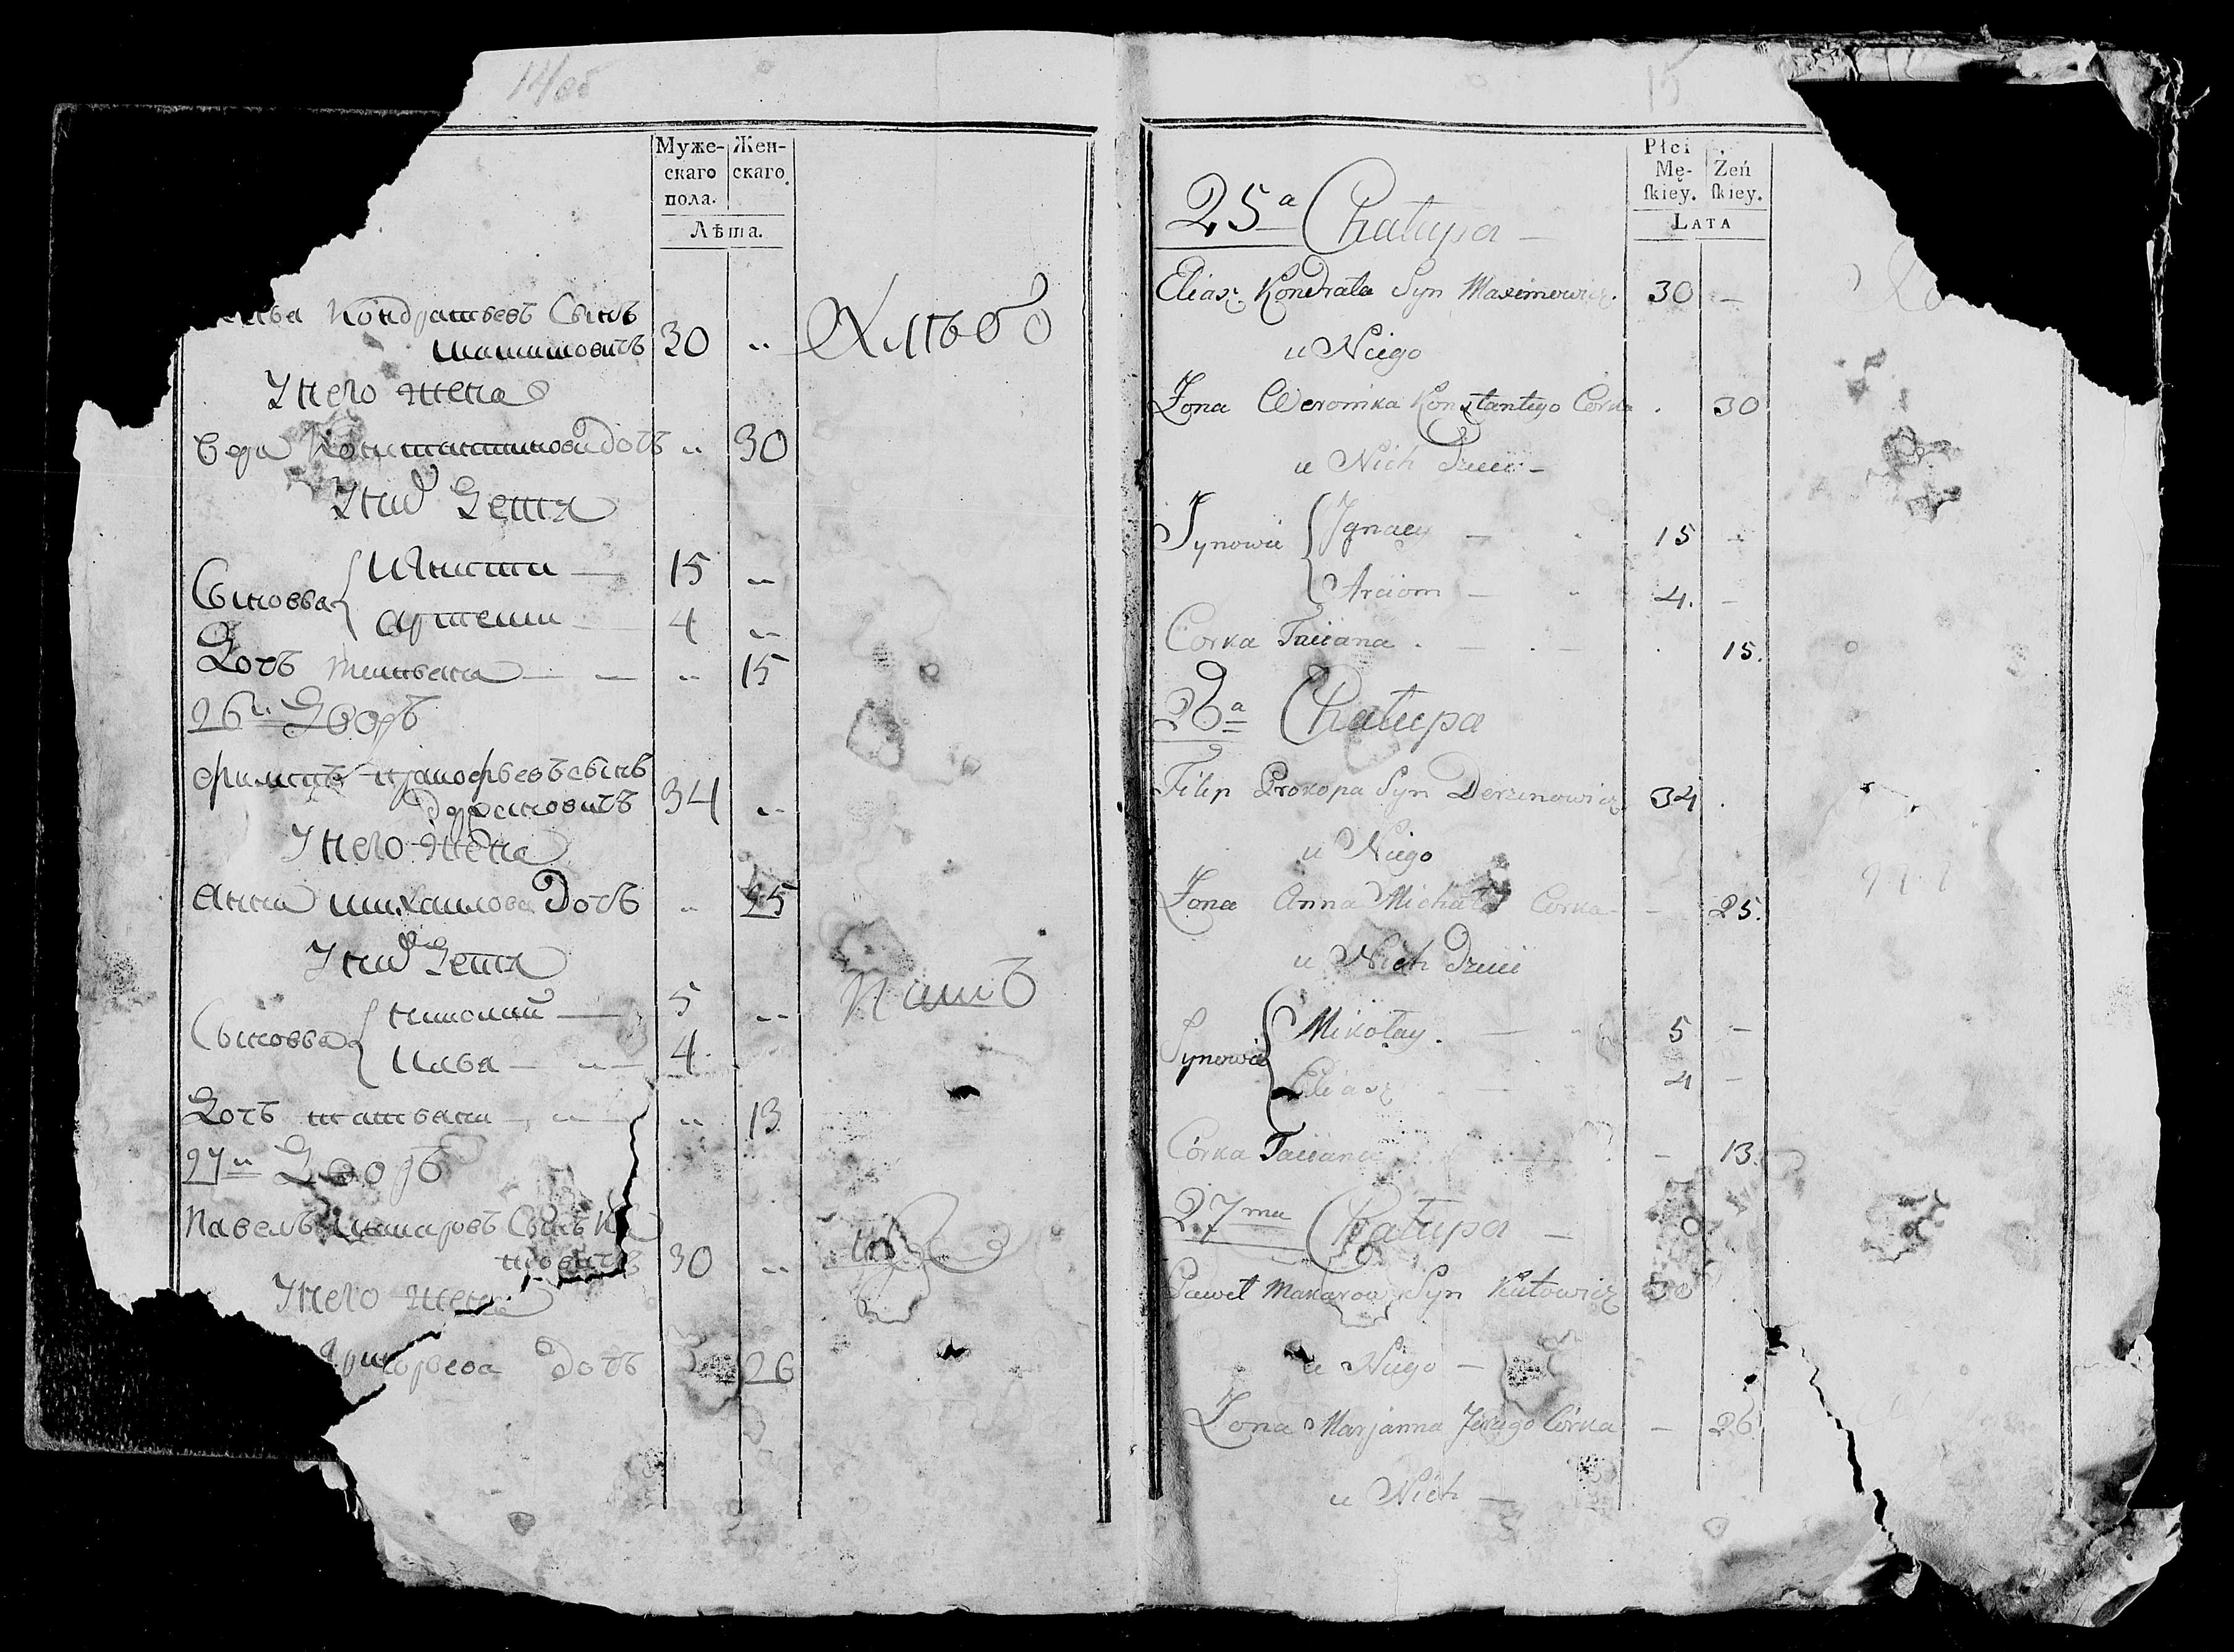 14/об
Муже-
скаго
пола.
Жен-
скаго.
Лѣта.
Кондратьевъ Сынъ
30 "
У него жена
Константинова дочь " 30
У нихъ Дети
Сыновья
Игнати — 15 "
Артеми — 4 "
Дочь Татьяна — — " 15
26й Дворъ
Филипъ Прокофьевъ сынъ
34 "
У него жена
Анна Михаилова Дочь " 25
У нихъ Дети
Сыновья
Николай — 5 "
Илья — " — 4
Дочь татьяна — " — " 13
27й Дворъ
Павелъ Макаровъ Сынъ
30 "
У него жена
дочь 26
15
Płci
Mę-
ſkiey.
Żeń
ſkiey.
LATA
25a Chałupa —
Eliasz Kondrata Syn Maximowicz. 30 —
u Niego
Żona Weronika Konstantego Corka . 30
u Nich Dzieci —
Synowie
Ignacy — 15 -
Arciom — 4. —
Corka Taciana . — . — . 15.
26a Chałupa
Filip Prokopa Syn Derzenowicz 34 .
u Niego
Żona Anna Michała Corka — 25.
u Nich Dzieci
Synowie
Mikołay. — 5 —
Eliasz — 4 —
Córka Taciana — 13.
27ma Chałupa —
Paweł Makarow Syn Kutowicz 30 .
u Niego —
Żona Marjanna Jerzego Córka — 26
u Nich —